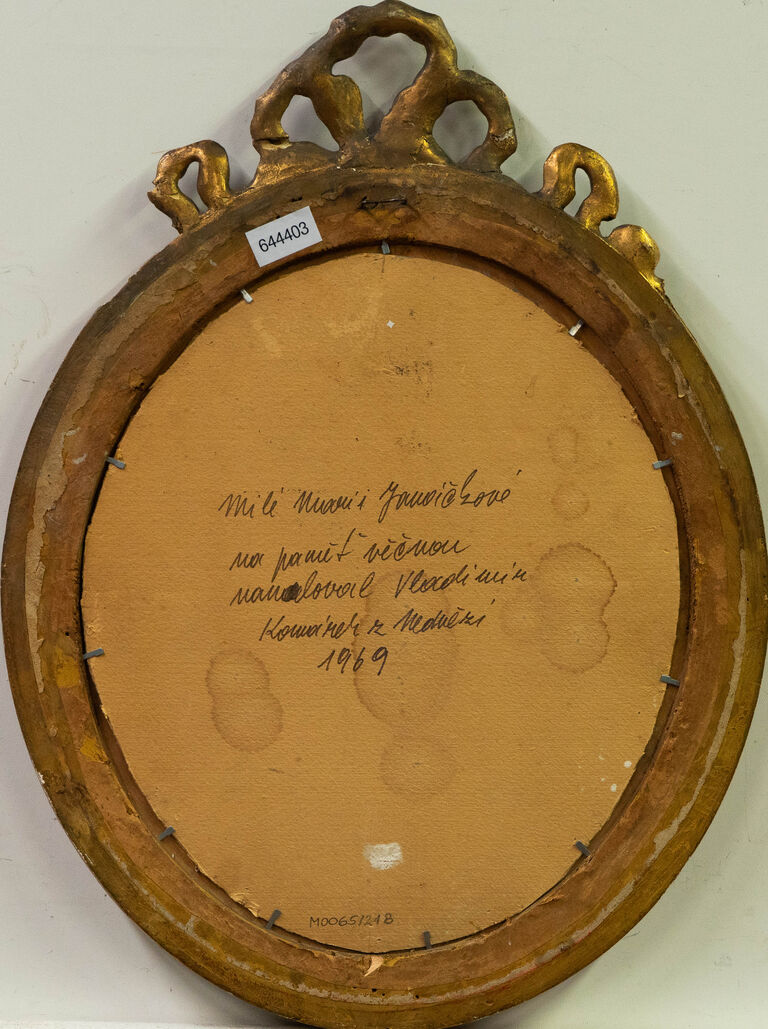 644403
Milé Marii Janáčkové
na paměť věčnou
namaloval Vladimír
Komárek z Hedvězí
1969
M0065/24B